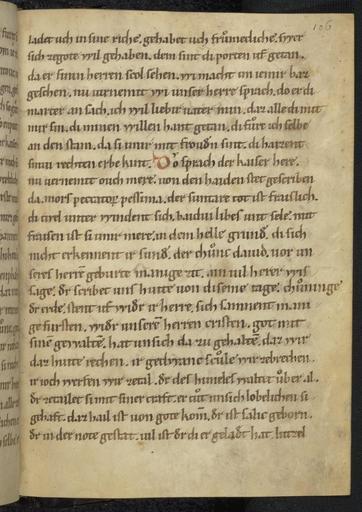 106
ladet uch in sine riche. gehabet uch frůmecliche. swer
sich zegote wil gehaben. dem sint di porten uf getan.
da er sinin herren scol sehen. wi macht im iemir baz
geschen. nu vernemt wi unser herre sprach. do er di
marter an sach. ich wil liebir vater min. daz alle di mit
mir sin. di minen willen hant getan. di fůre ich selbe
an den stam. da si mir mit froudn sint. di haizent
sinu rechten erbe kint. Do sprach der kaiser here.
nu vernemt ouch mere. von den haiden stet gescriben
da. mors peccatorum pessima. der suntare tot ist fraislich.
di sint unter windent sich. baidiu libes unt sele. mit
fraisen ist si imir mere. in dem helle grunde. di sich
nicht erkennent ir sunde. der chůnc dauid. uor un
seres herren geburte manige zit. an uil herer wis
sage. der scribet uns hiute von diseme tage. chuninge
der erde. stent uf widir ir herre. sich samnent mani
ge fursten. widir unseren herren cristen. got mit
sine gewalte. hat unsich da zu gehalten. daz wir
daz hiute rechen. ir gedwanc scule wir zebrechen.
ir ioch werfen wir zetal. der des himeles waltet uber al.
der zetailet si mit siner craft. er tůt unsich lobelichen si
gehaft. daz hail ist von gote kom. der ist salic geborn.
der in der note gestat. uil ist der di er geladet hat. luzzel